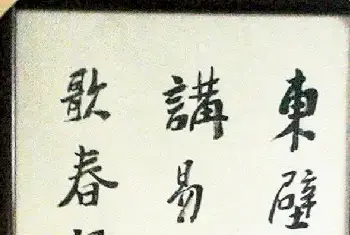 東壁
講易
歌春